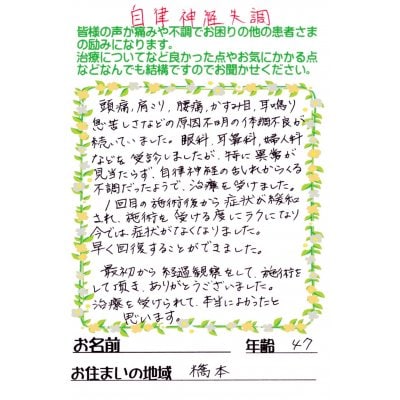 自律神経失調
皆様の声が痛みや不調でお困りの他の患者さま
の励みになります。
治療についてなど良かった点やお気にかかる点
などなんでも結構ですのでお聞かせください。
頭痛,肩こり,腰痛,かすみ目,耳鳴り
息苦しさなどの原因不明の体調不良が
続いていました。眼科,耳鼻科,婦人科
などを受診しましたが、特に異常が
見当たらず、自律神経の乱れからくる
不調だったようで、治療を受けました。
1回目の施術後から症状が緩和
され、施術を受ける度にラクになり
今では症状がなくなりました。
早く回復することができました。
最初から経過観察をして、施術を
して頂き、ありがとうございました。
治療を受けられて、本当によかったと
思います。
お名前
年齢 47
お住まいの地域 橋本